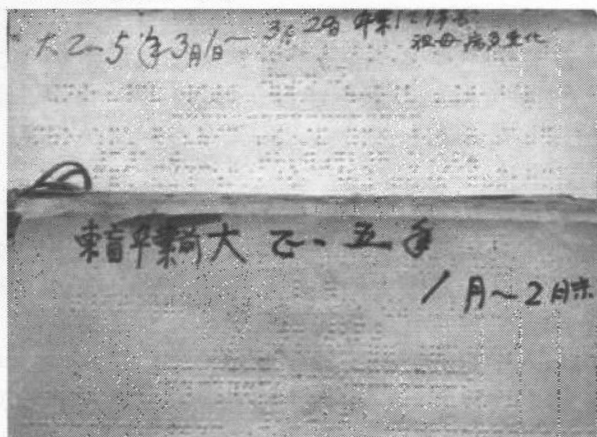 大正一5年3月1日〜3月 卒業
祖母
東盲卒業前大正一五年
1月〜2月末